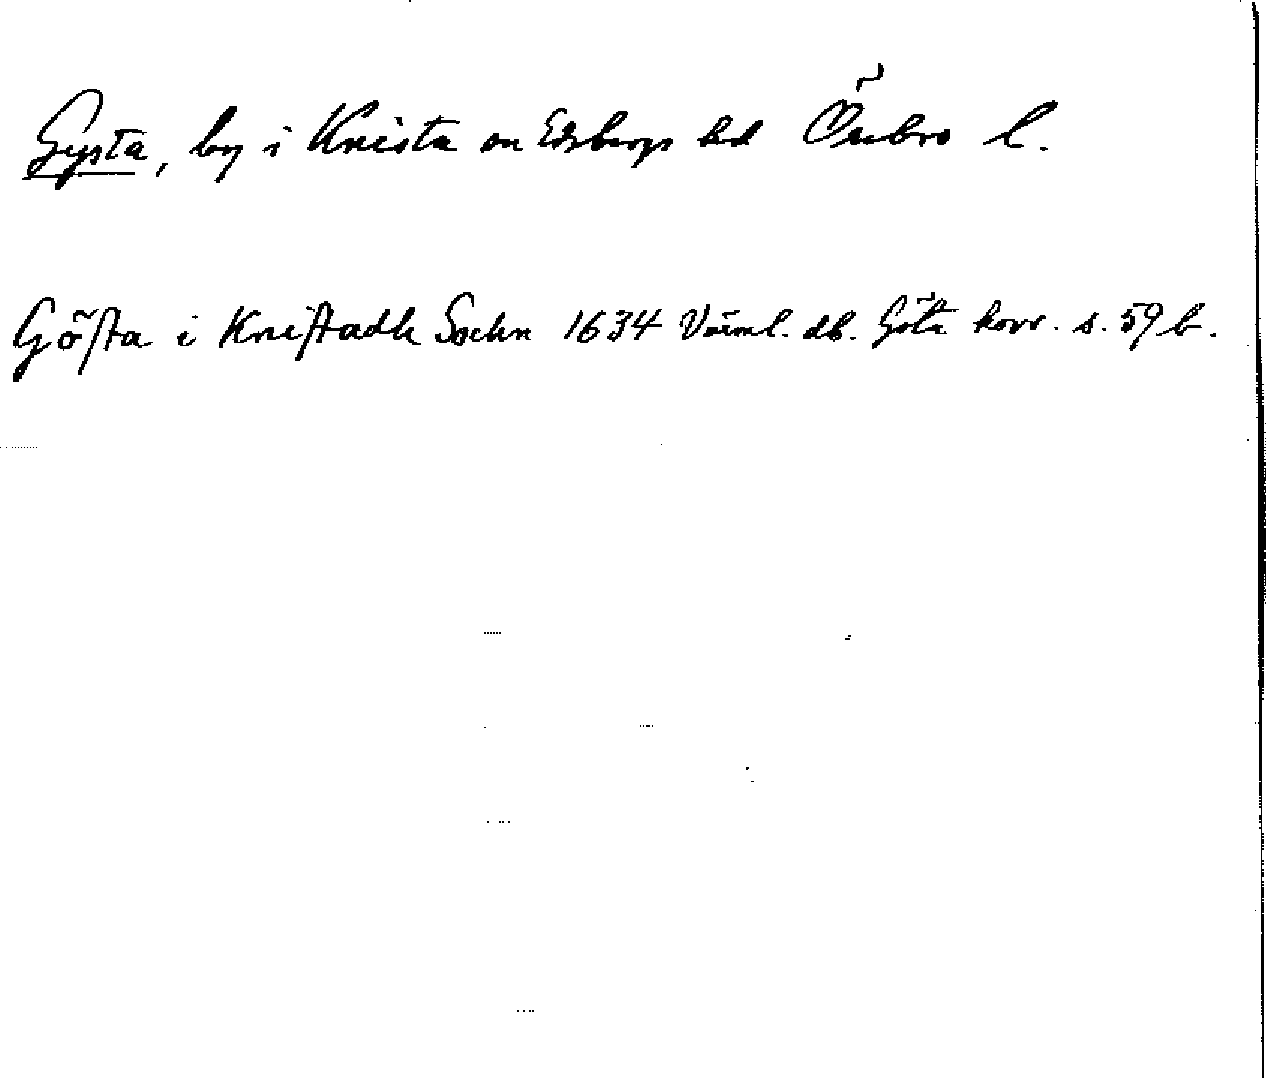 Gysta, by i Knista sn Edsbergs hd Örebro l.
Gösta i Knistadh Sochn 1634 Värml. db. Göta hovr. s. 59 b.